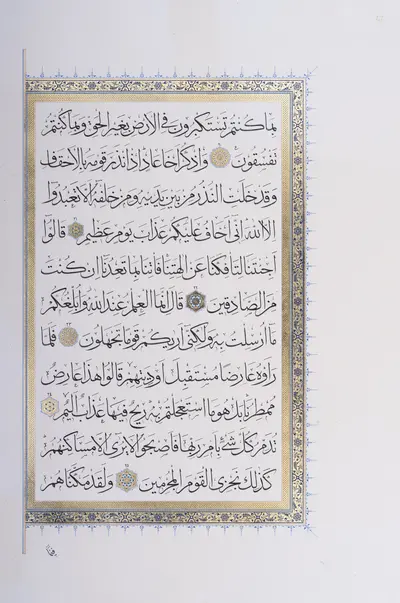 بِمَا كُنْتُمْ تَسْتَكْبِرُونَ فِي الْأَرْضِ بِغَيْرِ الْحَقِّ وَبِمَا كُنْتُمْ
تَفْسُقُونَ وَاذْكُرْ أَخَا عَادٍ إِذْ أَنْذَرَ قَوْمَهُ بِالْأَحْقَافِ
وَقَدْ خَلَتِ النُّذُرُ مِنْ بَيْنِ يَدَيْهِ وَمِنْ خَلْفِهِ أَلَّا تَعْبُدُوا
إِلَّا اللَّهَ إِنِّي أَخَافُ عَلَيْكُمْ عَذَابَ يَوْمٍ عَظِيمٍ قَالُوا
أَجِئْتَنَا لِتَأْفِكَنَا عَنْ آلِهَتِنَا فَأْتِنَا بِمَا تَعِدُنَا إِنْ كُنْتَ
مِنَ الصَّادِقِينَ قَالَ إِنَّمَا الْعِلْمُ عِنْدَ اللَّهِ وَأُبَلِّغُكُمْ
مَا أُرْسِلْتُ بِهِ وَلَكِنِّي أَرَيكُمْ قَوْمًا تَجْهَلُونَ فَلَمَّا
رَأَوْهُ عَارِضًا مُسْتَقْبِلَ أَوْدِيَتِهِمْ قَالُوا هَذَا عَارِضٌ
مُمْطِرُنَا بَلْ هُوَ مَا اسْتَعْجَلْتُمْ بِهِ رِيحٌ فِيهَا عَذَابٌ أَلِيمٌ
تُدَمِّرُ كُلَّ شَيْءٍ بِأَمْرِ رَبِّهَا فَأَصْبَحُوا لَا يُرَى إِلَّا مَسَاكِنُهُمْ
كَذَلِكَ نَجْزِي الْقَوْمَ الْمُجْرِمِينَ وَلَقَدْ مَكَّنَّاهُمْ
فيما